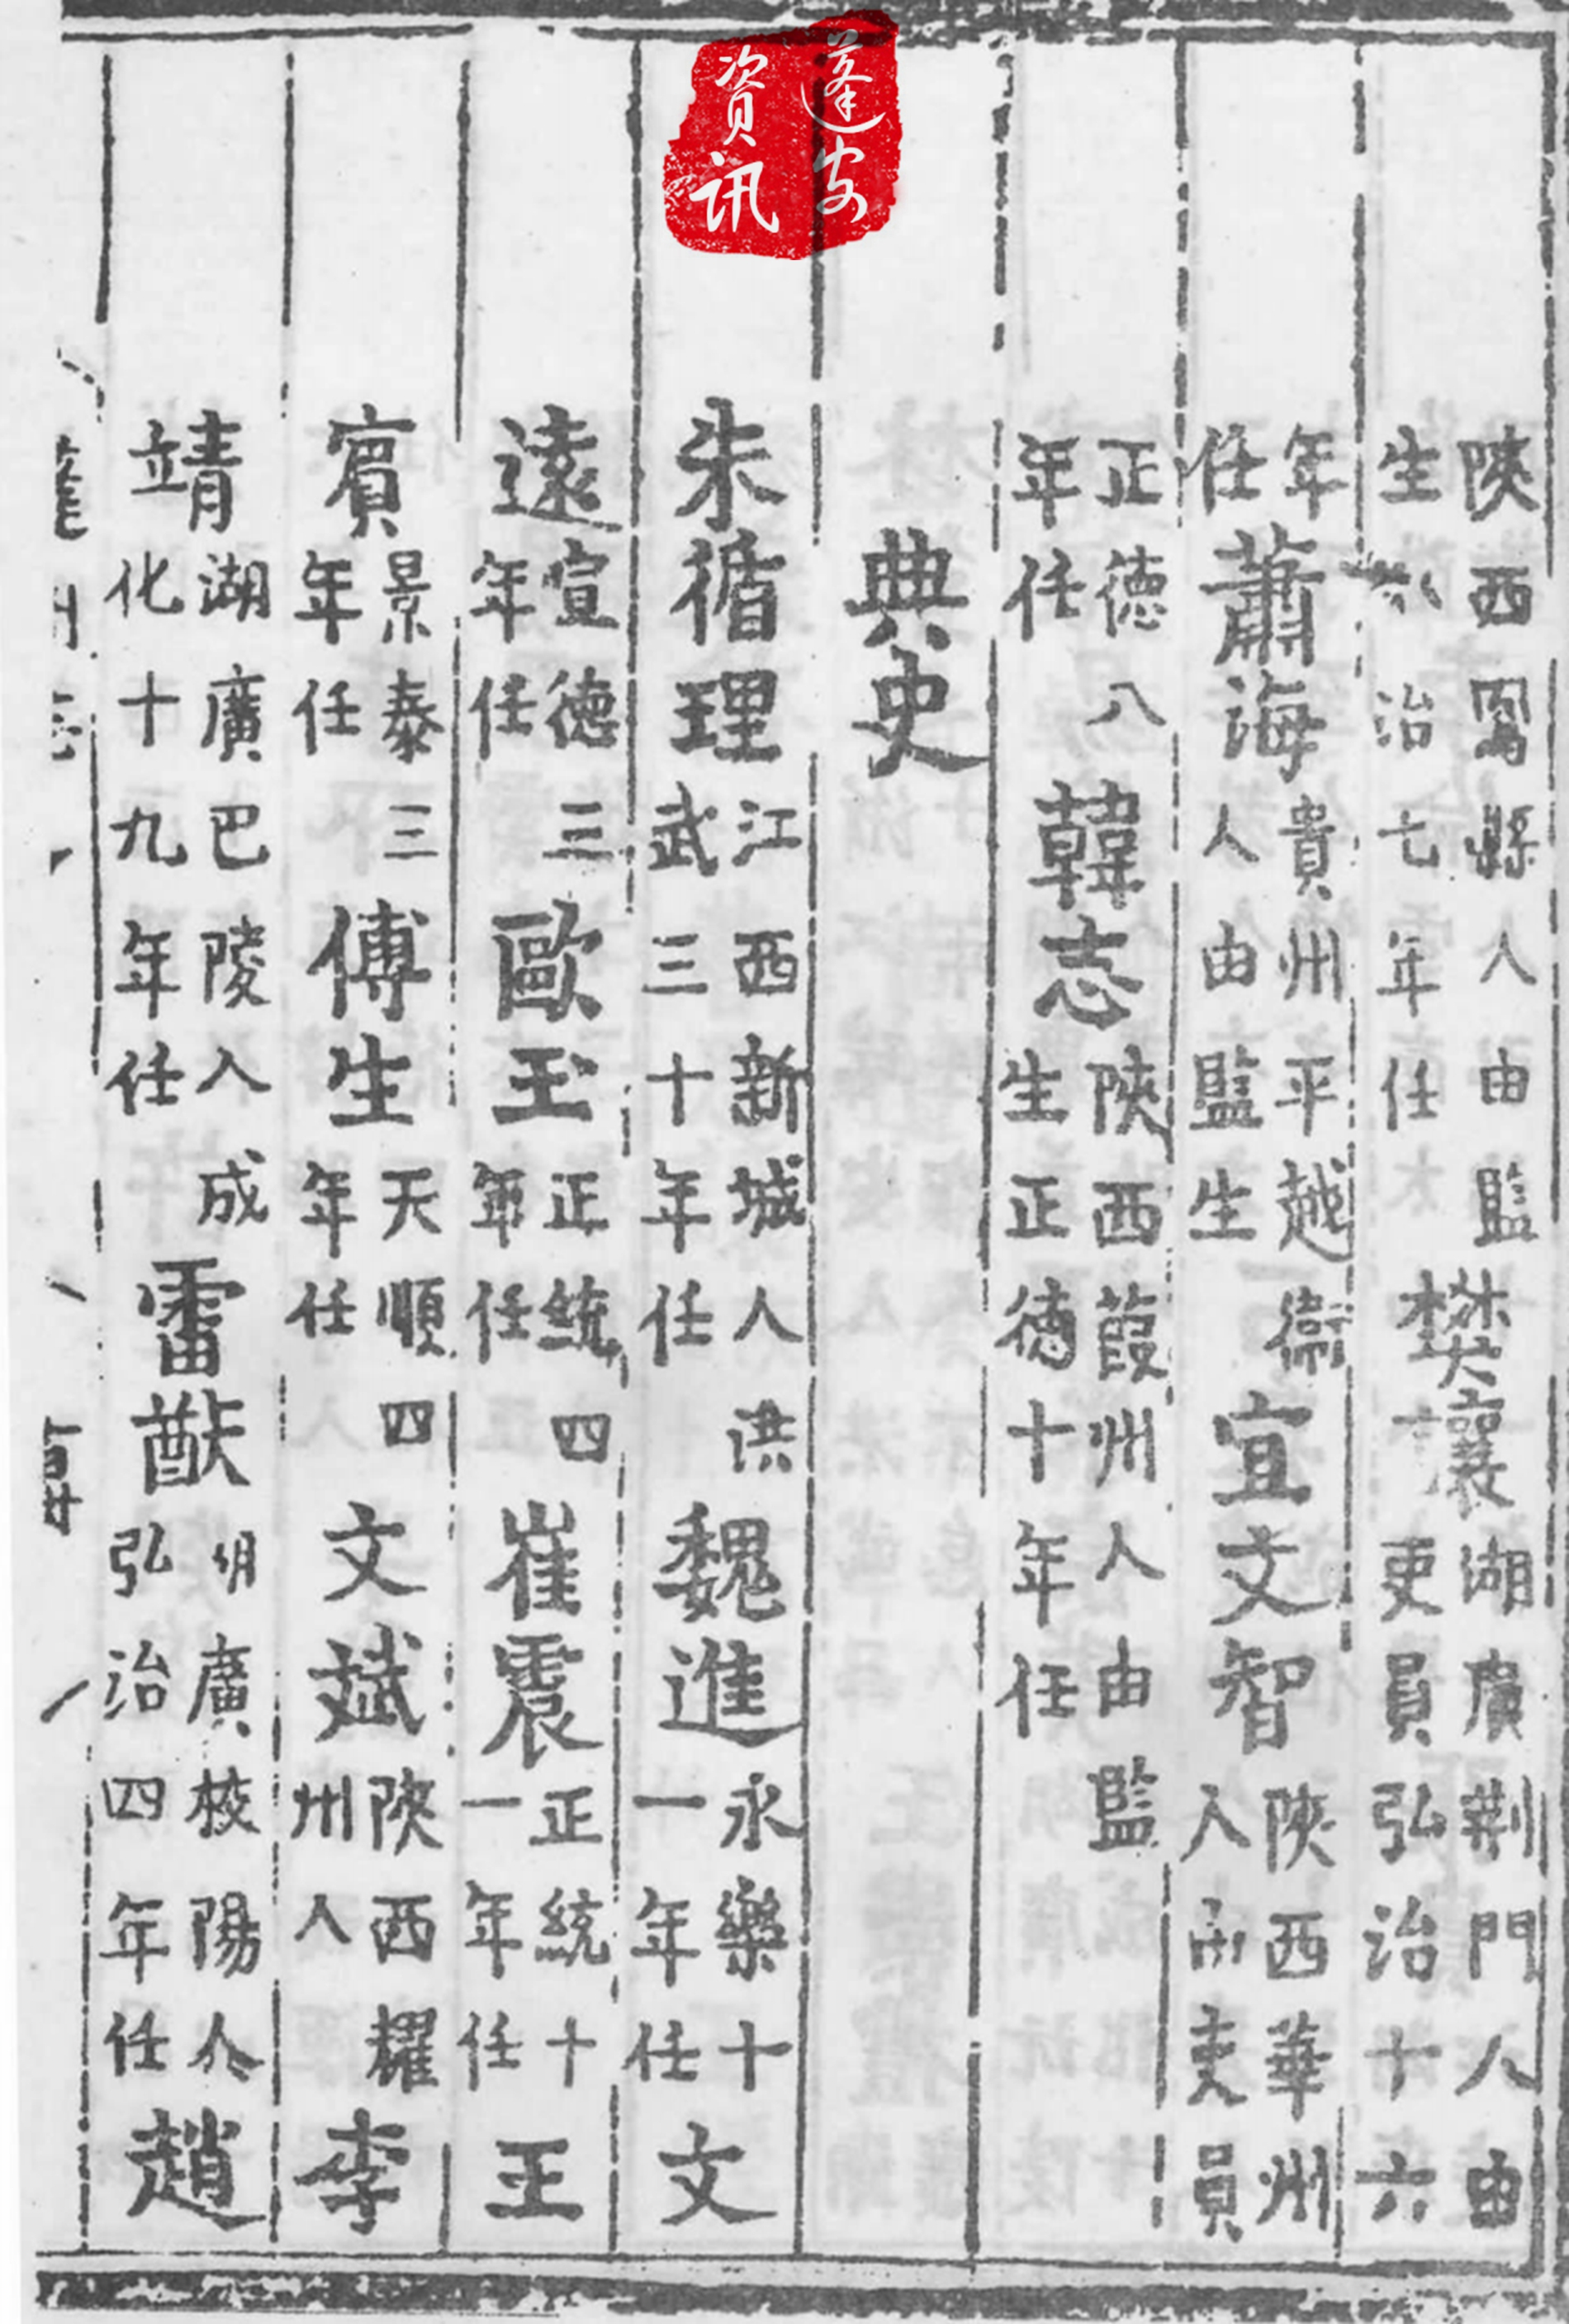 蓬安
資訊
陝西鳳縣人由監
生弘治七年任
樊讓
湖廣荆門人由
吏員弘治十六
年
任
蕭海
貴州平越衛
人由監生
宜文智
陝西華州
人由吏員
正德八
年任
韓志
陝西葭州人由監
生正德十年任
典史
朱循理
江西新城人洪
武三十年任
魏進
永樂十
一年任
文
遠
宣德三
年任
歐玉
正統四
年任
崔震
正統十
一年任
王
賔
景泰三
年任
傅生
天順四
年任
文斌
陝西耀
州人
李
靖
湖廣巴陵人成
化十九年任
雷猷
湖廣枝陽人
弘治四年任
趙